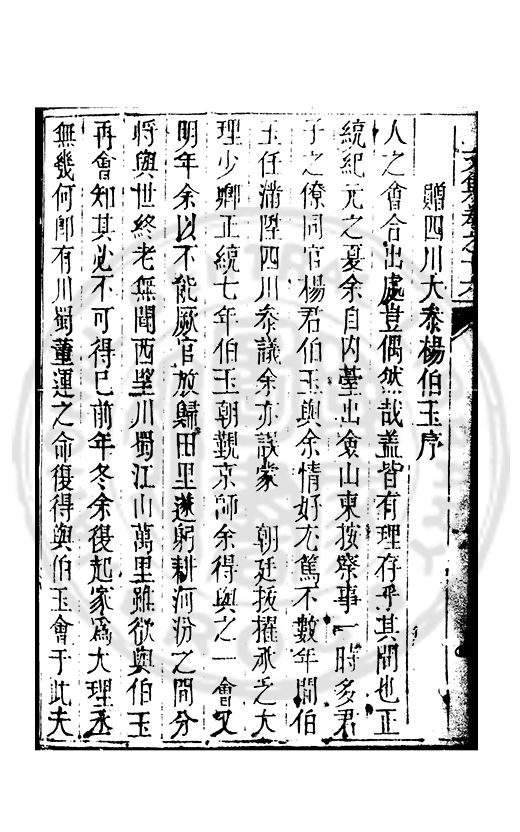 贈四川大叅楊伯玉序
人之會合出處豈偶然哉蓋皆有理存乎其間也正
統紀元之夏余自内臺出僉山東按察事一時多君
子之僚同官楊君伯玉與余情好尤篤不數年間伯
玉任滿陞四川叅議余亦誤蒙 朝廷拔擢承乏大
理少卿正統七年伯玉朝覲京師余得與之一會又
明年余以不能厥官放歸田里遂躬耕河汾之間分
將與世終老無聞西望川蜀江山萬里雖欲與伯玉
再會知其必不可得已前年冬余復起家爲大理丞
無幾何郎有川蜀董運之命復得與伯玉會于此夫